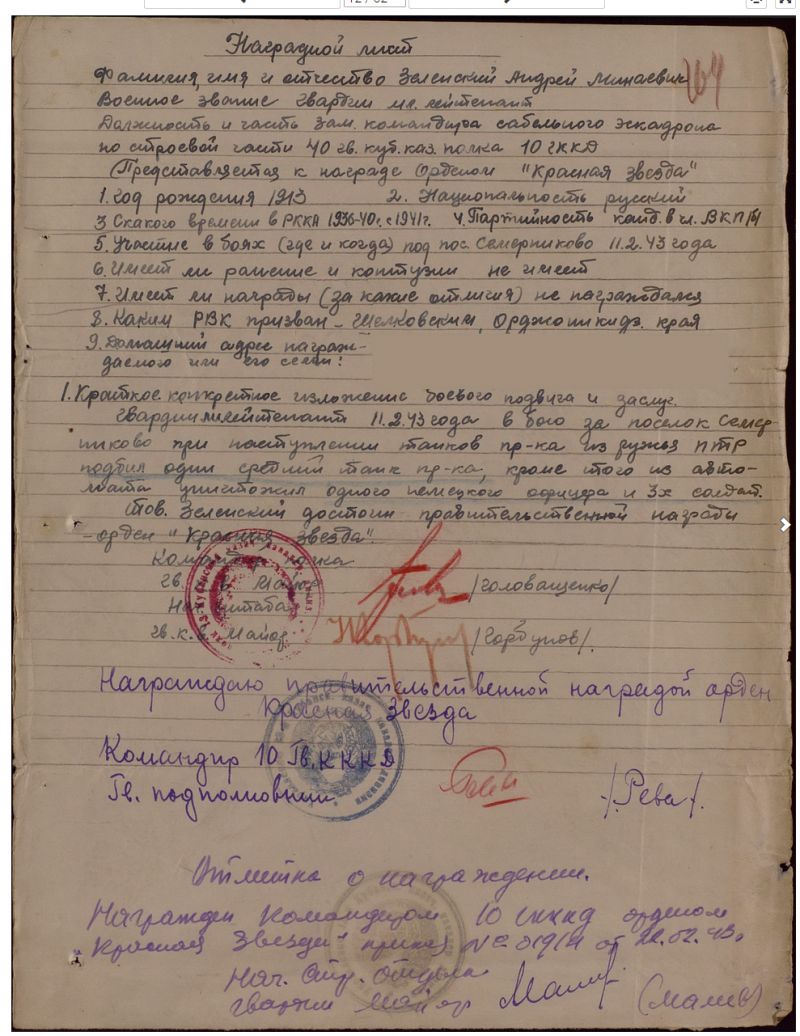 Наградной лист
764
Фамилия, имя и отчество Зеленский Андрей Минаевич
Военное звание гвардии мл. лейтенант
Должность и часть зам. командира сабельного эскадрона
по строевой части 40 гв. куб. каз. полка 10 гккд
(Представляется к награде Орденом "Красная Звезда"
1. Год рождения 1913 2. Национальность русский
3 С какого времени в РККА 1936-40г. с 1941г. 4. Партийность канд. в чл. ВКП/б/
5. Участие в боях (где и когда) под пос. Семерниково 11.2.43 года
6. Имеет ли ранение и контузии не имеет
7. Имеет ли награды (за какие отличия) не награждался
8. Каким РВК призван - Шелковским, Орджоникидз. края
9. Домашний адрес награж-
даемого или его семьи:
1. Краткое конкретное изложение боевого подвига и заслуг.
Гвардии мл. лейтенант 11.2.43 года в бою за поселок Семер
никово при наступлении танков пр-ка из ружья ПТР
подбил один средний танк пр-ка, кроме того из авто-
мата уничтожил одного немецкого офицера и 3х солдат.
Тов. Зеленский достоин правительственной награды
- орден "Красная Звезда".
Командир полка
гв. Майор /Головащенко/
Нач. штаба
гв. к. Майор /Горбунов/.
Награждаю правительственной наградой орден
Красная Звезда
Командир 10 Гв. К К К Д
Гв. подполковник /Рева/.
Отметка о награждении.
Награжден Командиром 10 гккд орденом
"Красная Звезда" приказ № 019/н от 22.02.43г
Нач. отдела
гвардии майор (Малив)